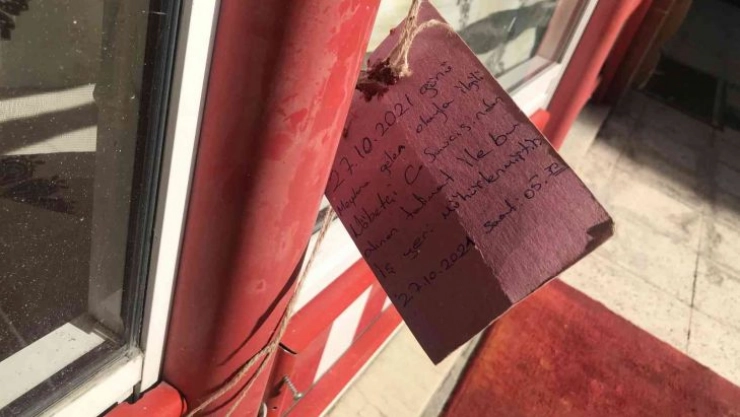 27.10.2021 günü
Meydana gelen olayla ilgili
Nöbetçi C. Savcısından
alınan talimat ile bu
iş yeri mühürlenmiştir
27.10.2021 Saat: 05.